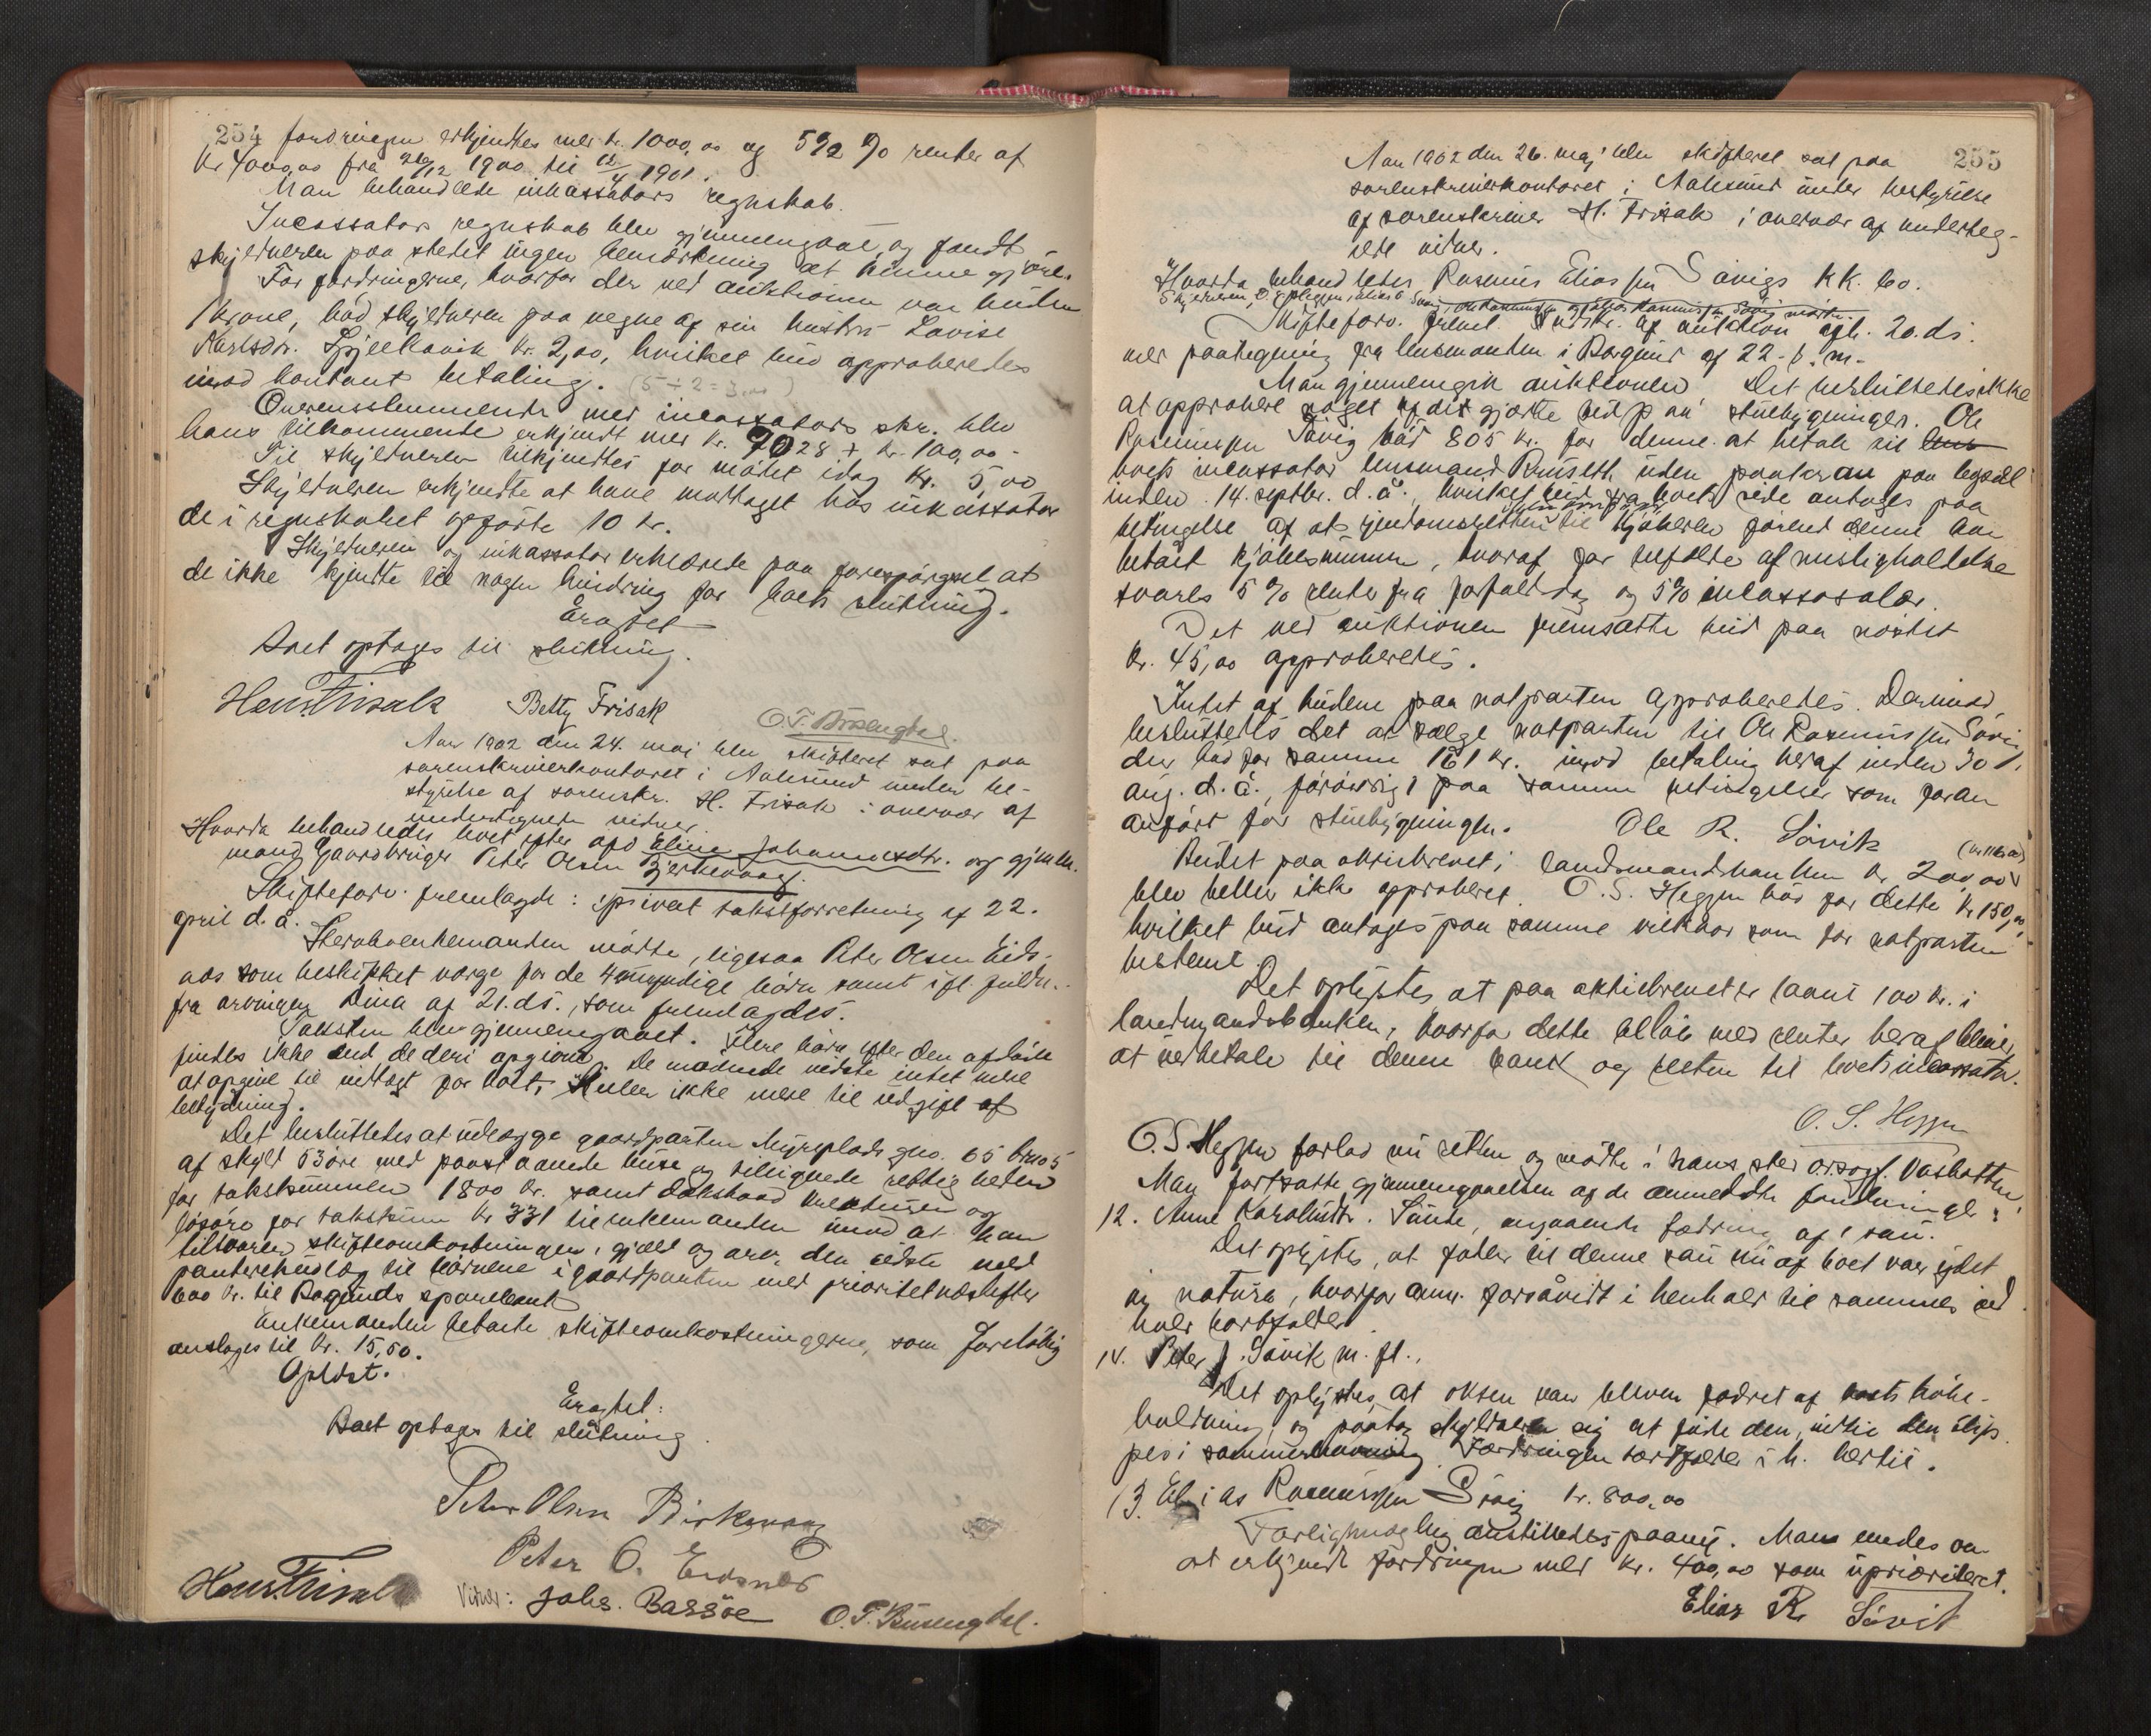 254 fordringen erkjendtes med kr. 1000,00 og 5 1/2 % renter af
kr 4000,00 fra 28/12 1900 til 12/4 1901.
Man behandlede inkassators regnskab.
Incassators regnskab blev gjennemgaaet og fandt
skyldneren paa stedet ingen bemærkning at kunne gjøre.
For fordringerne, hvorfor der ved auktionen var buden
1 krone, bød skyldneren paa vegne af sin hustru Lovise
Karlsdr. kr. 2,00, hvilket bud approberedes
imod kontant betaling. (5 + 2 = 3,00)
Overensstemmende med incassators skr. blev
hans tilkommende erkjendt med kr. 7028 + kr. 100,00.
Til skyldneren tilkjendtes for mødet idag kr. 5,00
Skyldneren erkjendte at have modtaget hos inkassator
de i regnskabet opførte 10 kr.
Skyldneren og inkassator erklærede paa forespørgsel at
de ikke kjendte til nogen hindring for boets slutning.
Eragtet
Boet optages til slutning.
Hans Frisak Betty Frisak O. T. Busengdal.
Aar 1902 den 24. mai blev skifteret sat paa
sorenskriverkontoret i Aalesund under be-
styrelse af sorenskr. H. Frisak i overvær af
undertegnede vidner.
Hvorda behandledes boet efter afd Eline Johannesdtr. og gjenlev.
mand Gaardbruger Peter Olsen Bjerkevaag.
Skifteforv. fremlagde: privat takstforretning af 22.
april d. å.
Sterboenkemanden mødte, ligesaa Peter Olsen Eids-
nes som beskikket værge for de 4 umyndige børn samt ifl. fuldm.
fra arvingen Dina af 21. ds., som fremlagdes.
Taksten blev gjennemgaaet. Flere børn efter den afdøde
findes ikke end de deri opgivne. De mødende vidste intet mere
at opgive til indtægt for boet, heller ikke mere til udgift af
betydning.
Det besluttedes at udlægge gaardparten Myreplads gno. 65 brno 5
af skyld 53 øre med paastaaende huse og tilliggende rettigheder
for takstsummen 1800 kr. samt dødsboets kreaturer og
løsøre for takstsum kr 331 til enkemanden imod at han
tilsvarer skifteomkostninger, gjæld og arv, den sidste med
panterhefte til børnene i gaardparten med prioritet næstefter
600 kr. til Borgunds sparebank
Enkemanden betalte skifteomkostningerne, som foreløbig
anslages til kr. 15,50.
Oplæst.
Eragtet:
Boet optages til slutning.
Peter Olsen Birkevaag
Peter O. Eidsnes
Hans Frisak Vidner: Johs. Bassøe O. T. Busengdal.
255
Aar 1902 den 26. maj blev skifteret sat paa
sorenskriverkontoret i Aalesund under bestyrelse
af sorenskriver H. Frisak i overvær af underteg-
nede vidner.
Hvorda behandledes Rasmus Eliassen Søvigs KK. bo.
Skyldneren, O. S. Heggen, Elias R. Søvig, Ole Rasmussen mødte.
Skifteforv. freml. udskr. af auktion afh. 20. ds.
med paategning fra lensmanden i Borgund af 22. s. m.
Man gjennemgik auktionen. Det besluttedes ikke
at approbere noget af det gjorte bud paa stuebygningen. Ole
Rasmussen Søvig bød 805 kr. for denne at betale til
boets incassator lensmand Ramseth uden pantekrav paa bopæl
inden 14. septbr. d. å., hvilket bud fra boets side antages paa
betingelse af at ejendomsretten til kjøberen førend denne har
betalt kjøbesummen, hvoraf for tilfælde af misligholdelse
svares 5 % renter fra forfaldsdag og 5% incassosalær.
Det ved auktionen fremsatte bud paa nøstet
kr. 45,00 approberedes.
Intet af budene paa notparten approberedes. Derimod
besluttedes det at sælge notparten til Ole Rasmussen Søvig
der bød for samme 161 kr. imod betaling heraf inden 30/
aug. d. å., forøvrigt paa samme betingelser som foran
anført for stuebygningen. Ole R. Søvik
Budet paa aktiebrevet i Landmandsbanken kr. 200,00 (kr. 116,00)
blev heller ikke approberet. O. S. Heggen bød for dette kr 150,00
hvilket bud antages paa samme vilkaar som for notparten
bestemt.
Det oplystes at paa aktiebrevet er laant 100 kr. i
landmandsbanken, hvorfor dette beløb med renter heraf bliver
at indbetale til denne bank og resten til boets incassator.
O. S. Heggen
O. S. Heggen forlod nu retten og mødte i hans sted orsagf. Vasbotten
Man fortsatte gjennemgaaelsen af de anmeldte fordringer:
12. Anne Karolusdtr. Sunde, angaaende fodring af 1 sau.
Det oplystes, at foder til denne sau nu af boet var ydet
in natura, hvorfor anm. forsåvidt i henhold til sammes ind-
hold bortfalder.
14. Peter J. Søvik m. fl.,
Det oplystes, at oksen var bleven fodret af boets høbe-
holdning, og paatog skyldneren sig at føde den, indtil den slip-
pes i sommerhavning. Fordringen bortfalder i h. hertil.
13. Elias Rasmussen Søvig kr. 800,00
Forligsmægling anstilledes paany. Man enedes om
at erkjende fordringen med kr. 400,00 som uprioriteret.
Elias R Søvik